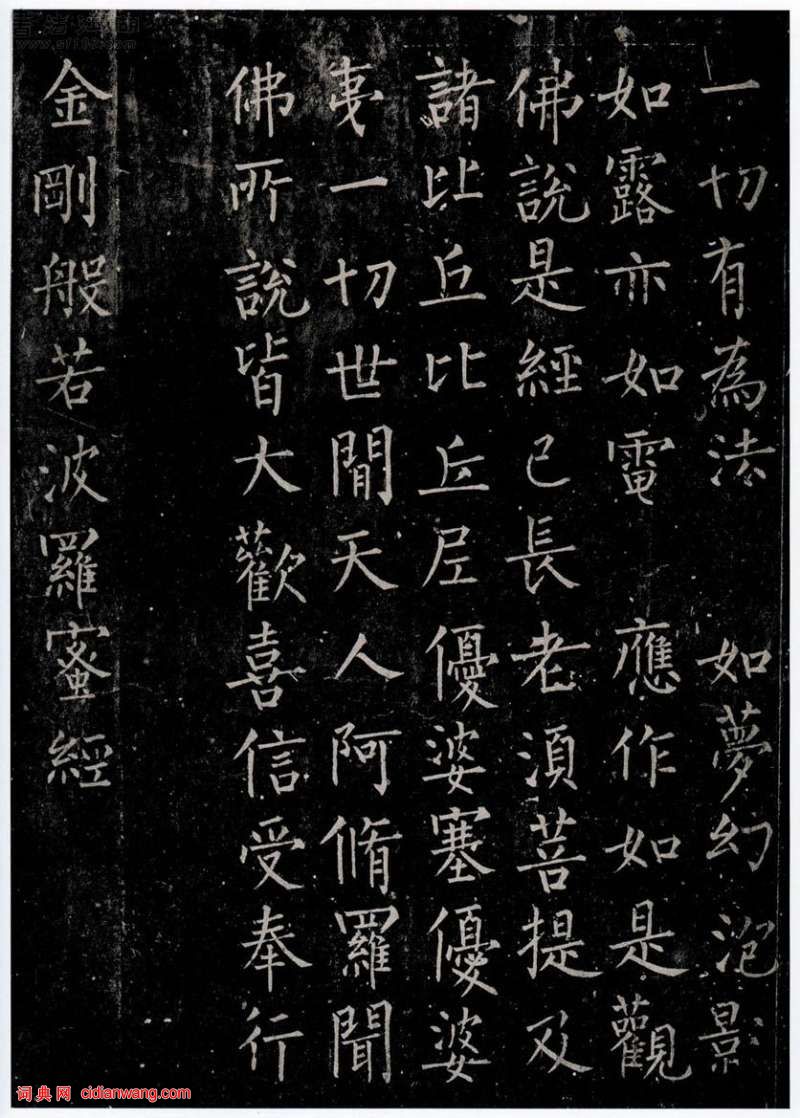 一切有為法　如夢幻泡影
如露亦如電　應作如是觀
佛說是經已長老須菩提及
諸比丘比丘尼優婆塞優婆
夷一切世間天人阿脩羅聞
佛所說皆大歡喜信受奉行
金剛般若波羅蜜經
词典网 cidianwang.com